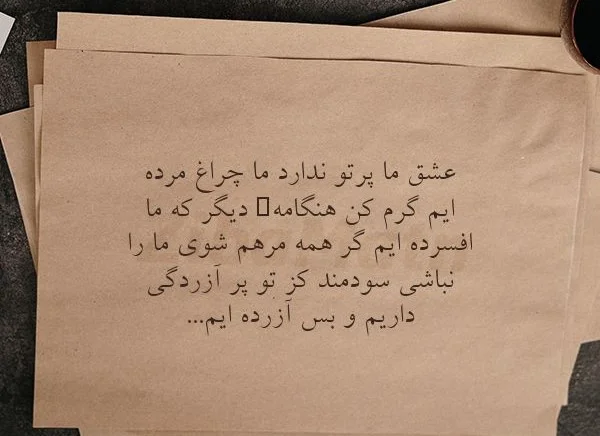 عشق ما پرتو ندارد ما چراغ مرده
ایم گرم کن هنگامه� دیگر که ما
افسرده ایم گر همه مرهم شوی ما را
نباشی سودمند کز تو پر آزردگی
داریم و بس آزرده ایم...